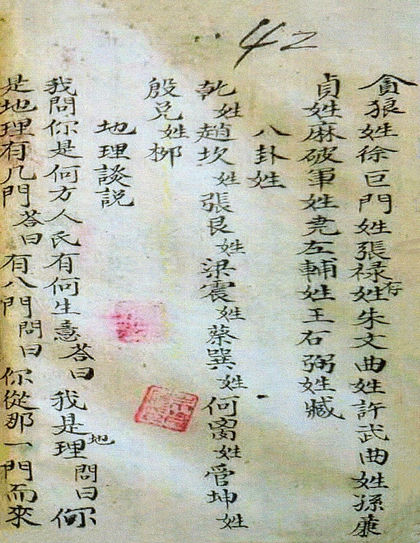 42
貪狼姓徐巨門姓張禄存姓朱文曲姓許武曲姓孫廉
貞姓麻破軍姓堯左輔姓王右弼姓臧
八卦姓
乾姓趙坎姓張艮姓梁震姓蔡巽姓何离姓管坤姓
殷兌姓柳
地理談說
我問你是何方人民有何生意答曰我是地理問曰你
是地理有几門答曰有八門問曰你從那一門而來